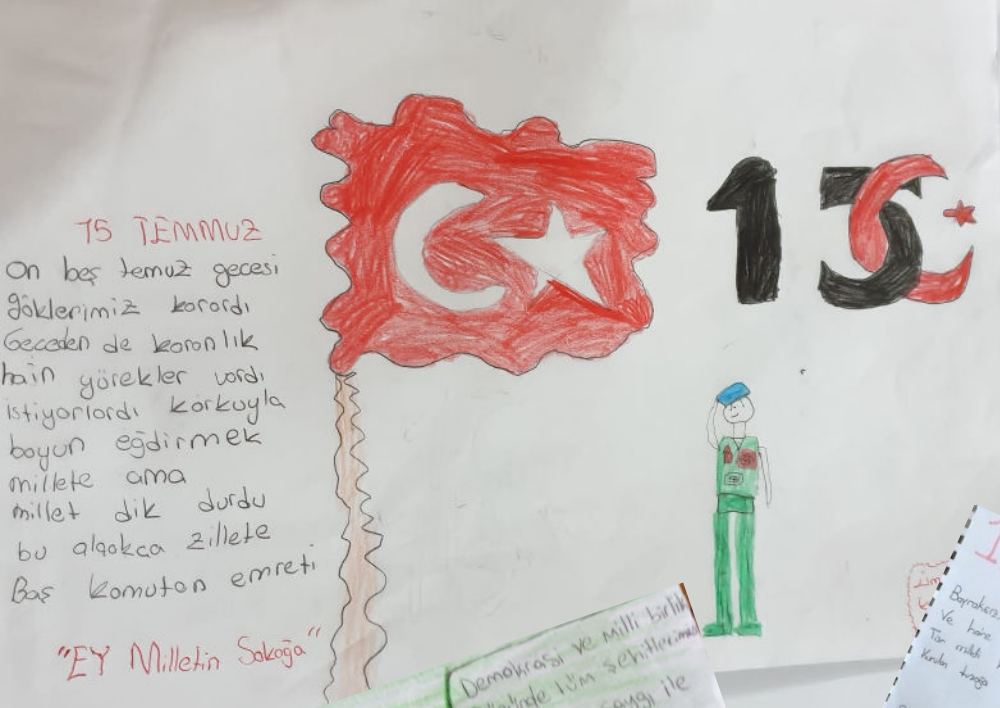 15 TEMMUZ
On beş temuz gecesi
göklerimiz korordı
Geceden de koronlık
hain yörekler vordı
istiyorlordı korkuyla
boyun eğdirmek
millete ama
millet dik durdu
bu alçokca zillete
Baş komuton emreti
"EY Milletin Sokoğa"
15
Demokrasi ve milli birlik
tüm şehitlerimiz
saygı ile
Bayraksız
Ve